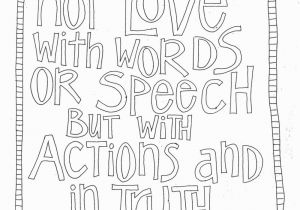 not Love
with words
or speech
But with
Actions and
in Truth